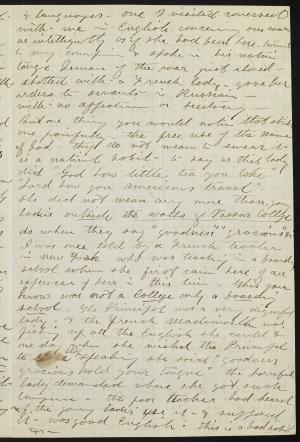 4 languages - one I visited conversed
with me in English concerning our war
as intelligently as if she had been here, turned
to my and spoke in his native
tongue German of the war just closed -
with a French lady - gave her
orders to servants in Russian -
with no affectation or
But one thing you would notice that strikes
one painfully - the free use of the name
of God - they do not mean to swear it
is a national habit - to say as this lady
did "God how little tea you take"
Lord how you americans travel"
she did not mean any more than you
ladies outside the walls of Vassar College
do when they say "goodness" "gracious"
I was once told by a French teacher
in New York who was teaching in a board
school when she first came here of an
experience of hers in this line - This you
know was not a College only a boarding
school - The Principal was a very dignified
lady - & the French Mademoiselle was
picking up all the English she could &
one day when she wished the Principal
to stop speaking she said, "goodness
gracious hold your tongue" the horrified
lady demanded where she got such
language - the poor teacher had heard
of the young ladies use it - & supposed
it was good English - This is a bad habit